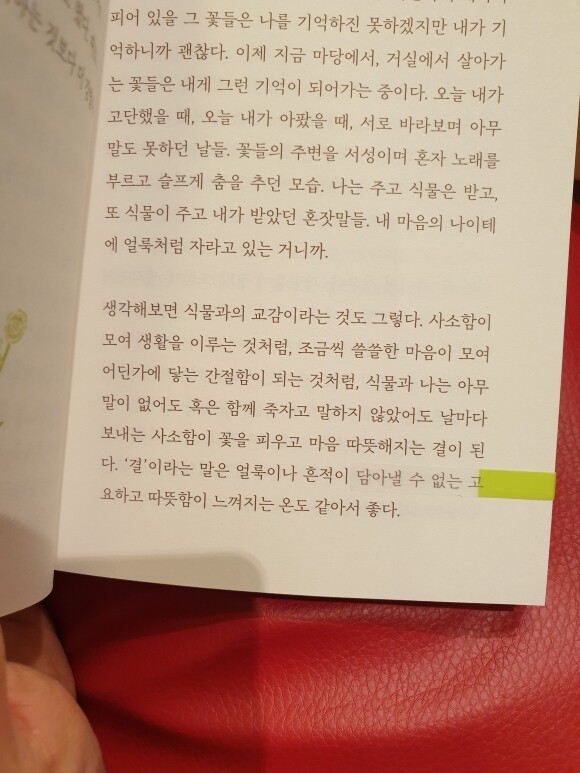 피어 있을 그 꽃들은 나를 기억하진 못하겠지만 내가 기
억하니까 괜찮다. 이제 지금 마당에서, 거실에서 살아가
는 꽃들은 내게 그런 기억이 되어가는 중이다. 오늘 내가
고단했을 때, 오늘 내가 아팠을 때, 서로 바라보며 아무
말도 못하던 날들. 꽃들의 주변을 서성이며 혼자 노래를
부르고 슬프게 춤을 추던 모습. 나는 주고 식물은 받고,
또 식물이 주고 내가 받았던 혼잣말들. 내 마음의 나이테
에 얼룩처럼 자라고 있는 거니까.
생각해보면 식물과의 교감이라는 것도 그렇다. 사소함이
모여 생활을 이루는 것처럼, 조금씩 쓸쓸한 마음이 모여
어딘가에 닿는 간절함이 되는 것처럼, 식물과 나는 아무
말이 없어도 혹은 함께 죽자고 말하지 않았어도 날마다
보내는 사소함이 꽃을 피우고 마음 따뜻해지는 결이 된
다. ‘결’이라는 말은 얼룩이나 흔적이 담아낼 수 없는 고
요하고 따뜻함이 느껴지는 온도 같아서 좋다.